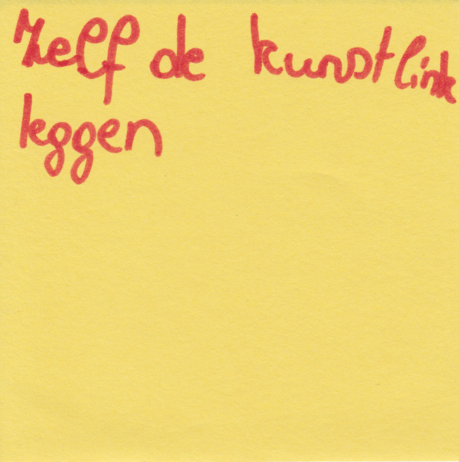 Zelf de kunstlink
leggen